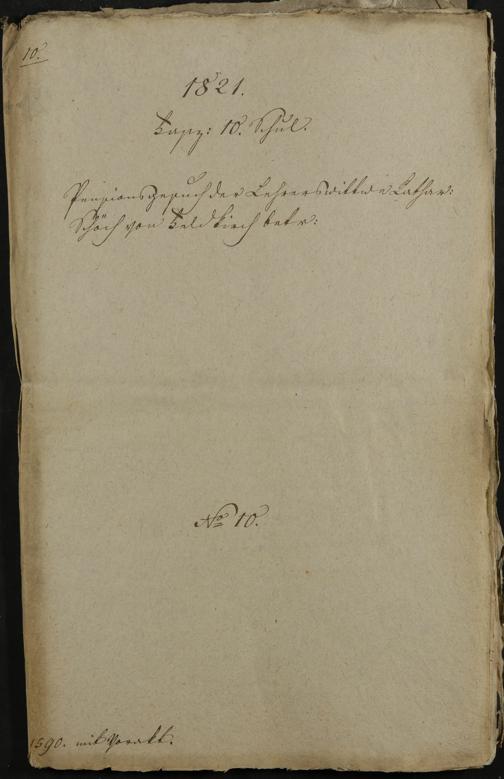 10.
1821.
Fasz: 10. Schul.
Pensionsgesuch der Lehrerswittwe Cathar:
Schöch von Feldkirch betr:
No 10.
1590. mit Vorakt.